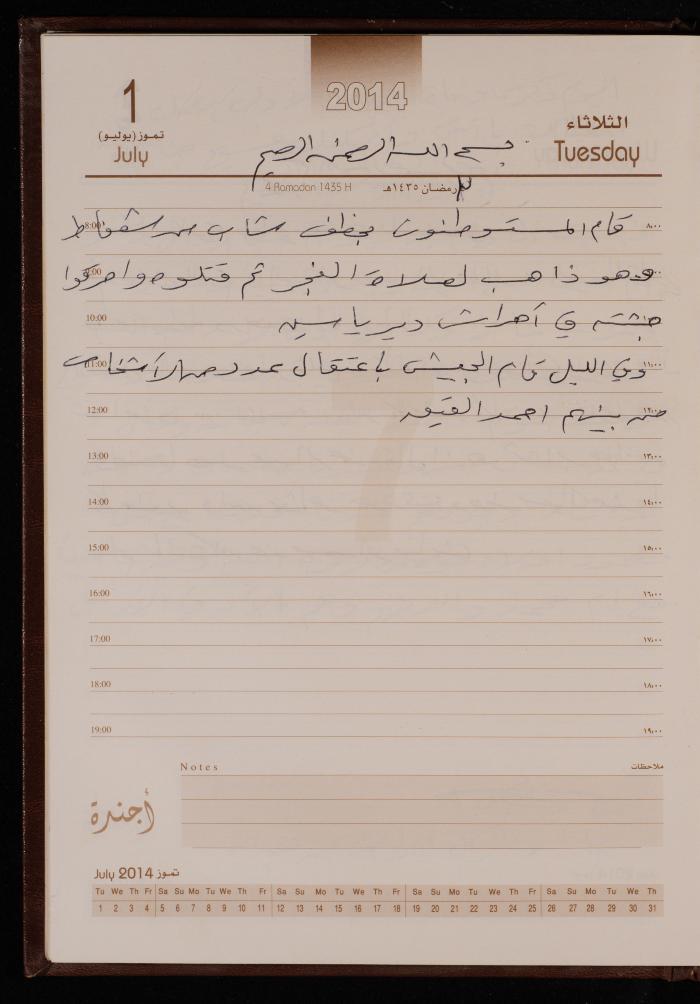 2014
1
تموز (يوليو)
July
الثلاثاء
Tuesday
بسم الله الرحمن الرحيم
4 Ramadan 1435 H
رمضان ١٤٣٥هـ
8:00 قام المستوطنون بخطف شاب من شعفاط ٨،٠٠
وهو ذاهب لصلاة الفجر ثم قتلوه واحرقوا
10:00
جثته في أحراش دير ياسين
11:00 وفي الليل قام الجيش باعتقال عدد من الأشخاص ١١،٠٠
12:00 من بينهم احمد ١٢،٠٠
13:00 ١٣،٠٠
14:00 ١٤،٠٠
15:00 ١٥،٠٠
16:00 ١٦،٠٠
17:00 ١٧،٠٠
18:00 ١٨،٠٠
19:00 ١٩،٠٠
Notes ملاحظات
أجندة
July 2014 تموز
Tu We Th Fr Sa Su Mo Tu We Th Fr Sa Su Mo Tu We Th Fr Sa Su Mo Tu We Th Fr Sa Su Mo Tu We Th
1 2 3 4 5 6 7 8 9 10 11 12 13 14 15 16 17 18 19 20 21 22 23 24 25 26 27 28 29 30 31